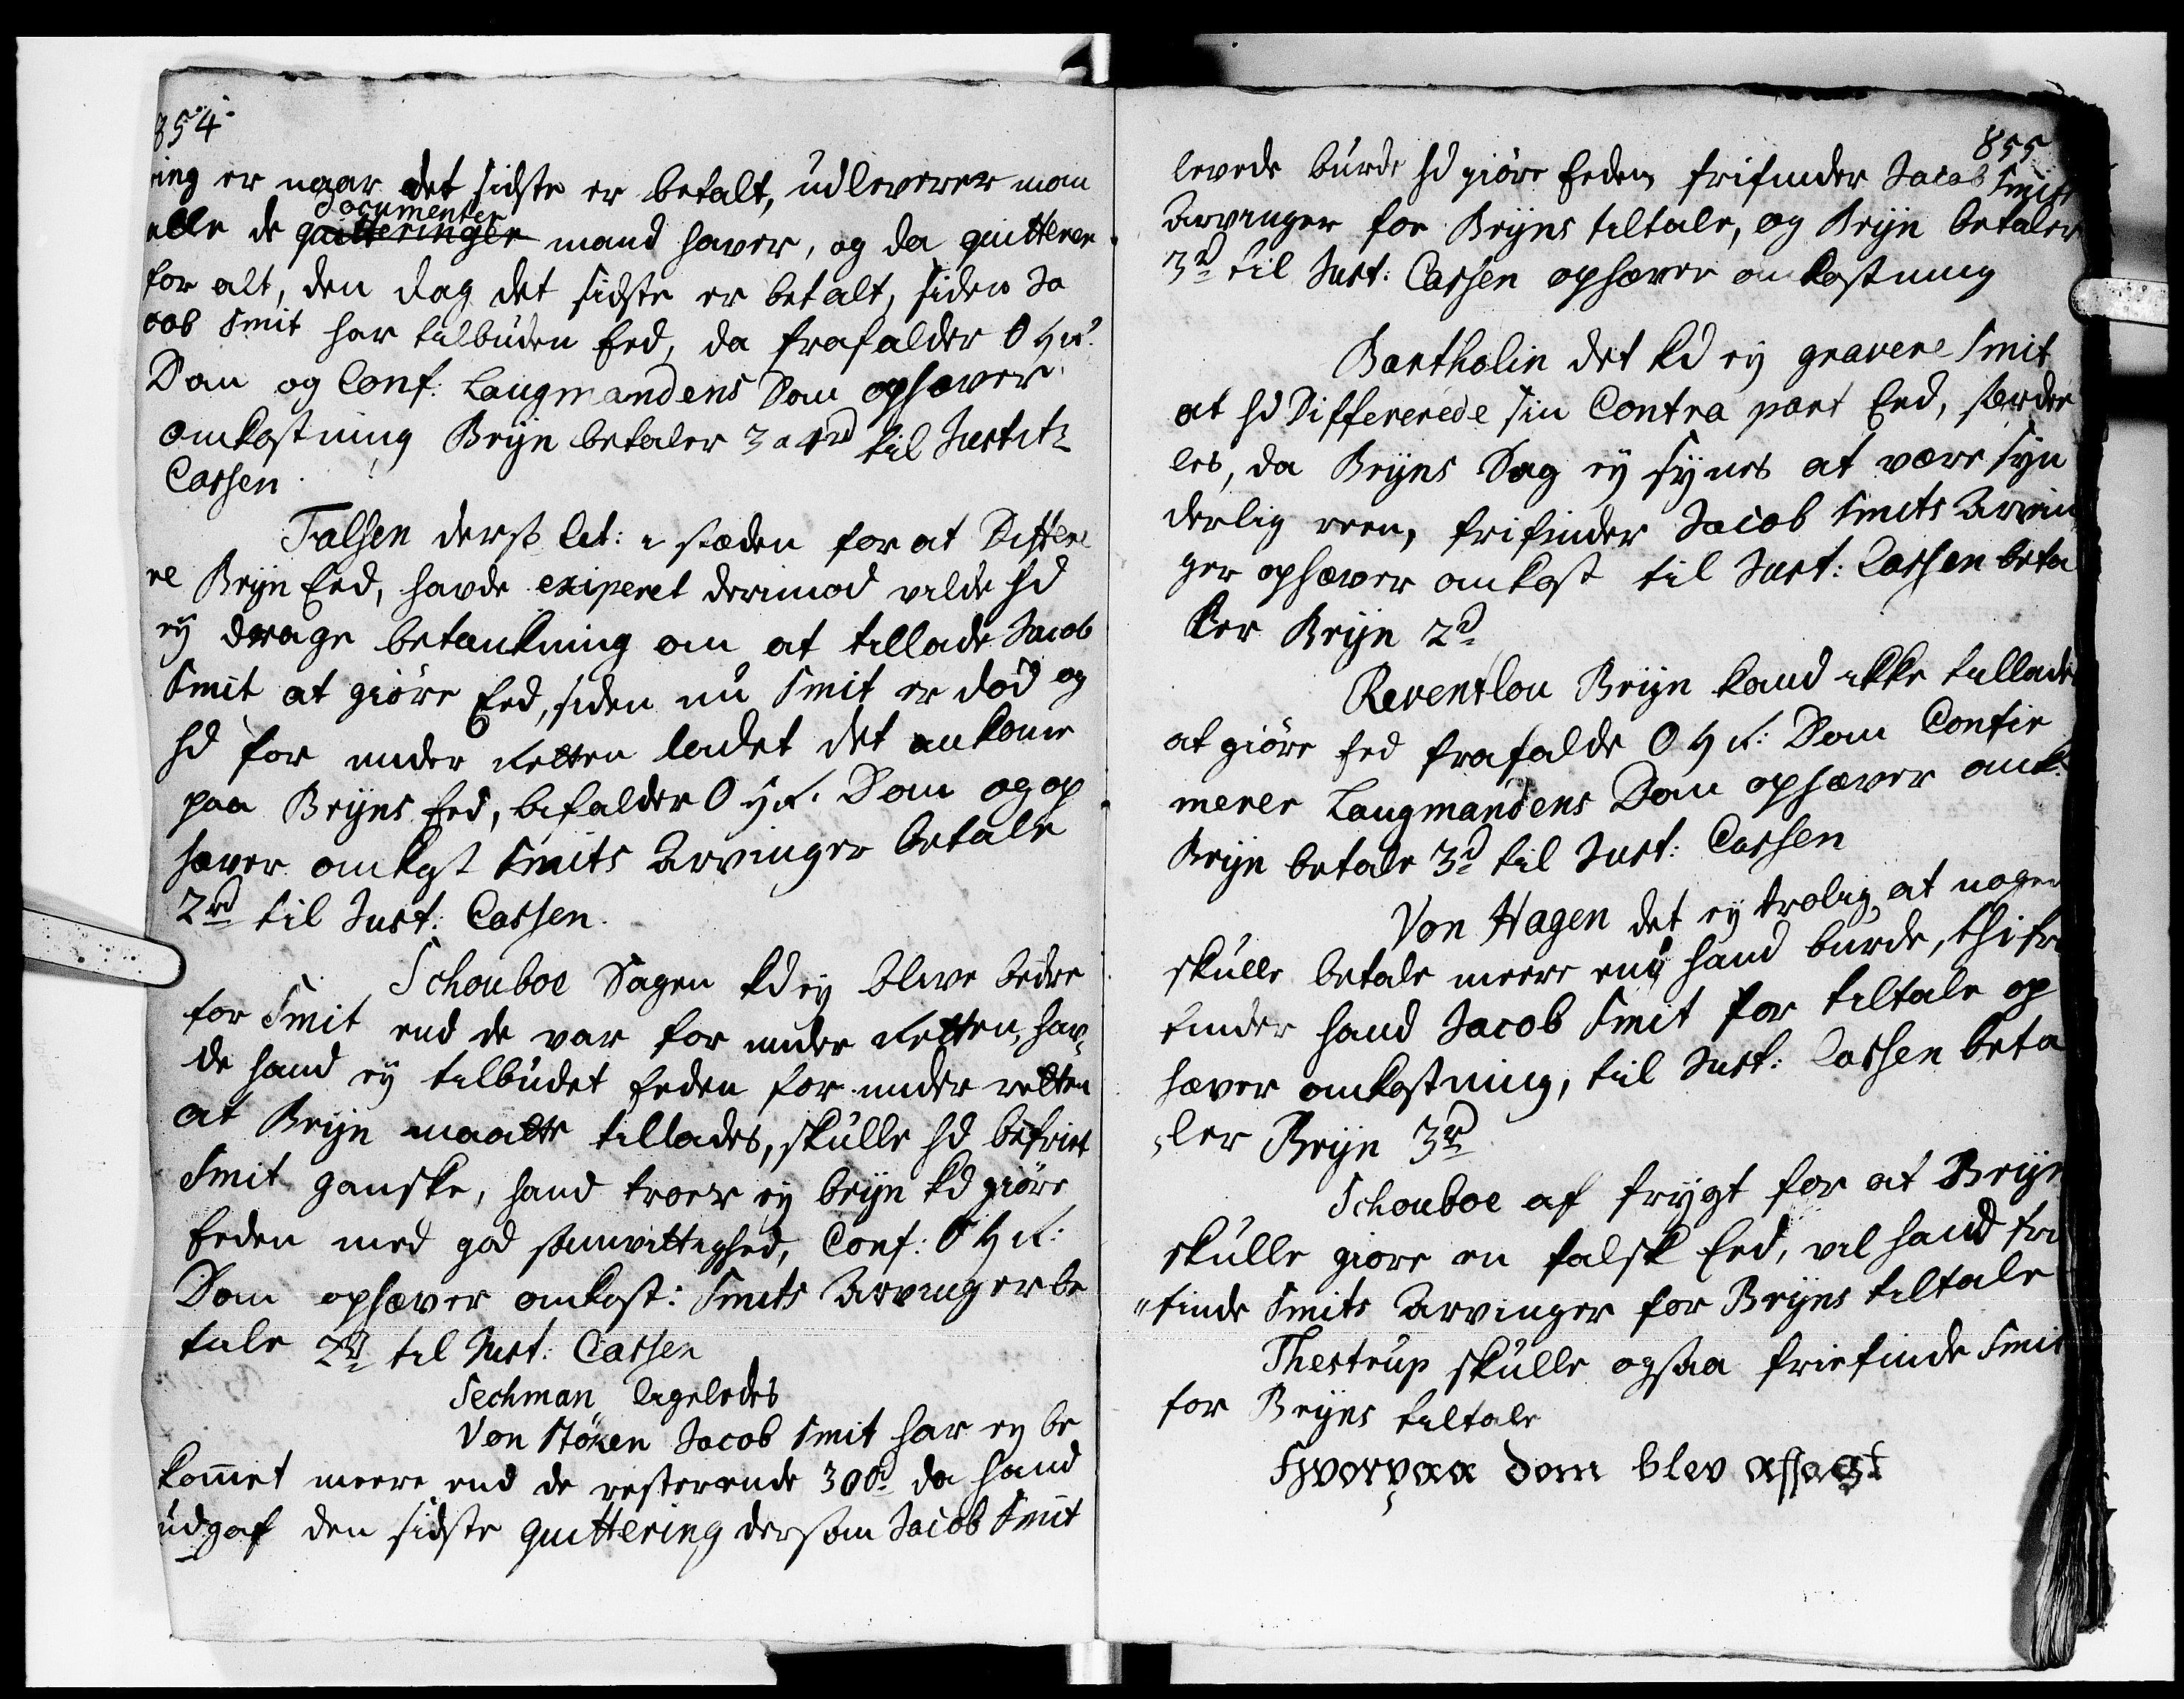 854
ing er naar det sidste er betalt, udleverer man
Documenter
alle de quitteringer mand haver, og da quitterer
for alt, den dag det sidste er betalt, siden Ja
cob Smit har tilbuden Eed, da frafalder O H R:
Dom og Conf: Laugmandens Dom ophæver
omkostning Brijn betaler 3 a 4 rd til Justitz
Cassen
Falsen derß let: i stæden for at Differe
re Brijn Eed, havde exiperet derimod vilde hd
ey drage betænkning om at tillade Jacob
Smit at giöre Eed, siden nu Smit er död og
hd for under Retten ladet det ankome
paa Brijns Eed, befalder O H R: Dom og op
hæver omkost Smits Arvinger betale
2 rd til Just: Cassen.
Schouboe Sagen kd ey blive bedre
for Smit end de var for under Retten, hav¬
de hand ey tilbudet Eeden for under retten
at Brijn maatte tillades, skulle hd befriet
Smit ganske, hand troer ey Brijn kd giöre
Eeden med god samvittighed, Conf: O H R:
Dom ophæver omkost: Smits Arvinger be
tale 2 rd til Just: Cassen
Sechman ligeledes
Von Stöken Jacob Smit har ey be
kommet meere end de resterende 300 d da hand
udgaf den sidste quittering dersom Jacob Smit
855
levede burde hd giöre Eeden, frifinder Jacob Smits
Arvinger for Brijns tiltale, og Brijn betaler
3 d til Just: Cassen ophæver omkostning
Bartholin det kd ey gravere Smit
at hd Differerede sin Contra part Eed, særde
les, da Brijns Sag ey synes at være syn
derlig reen, frifinder Jacob Smits Arvin
ger ophæver omkost til Just: Cassen beta
ler Brijn 2 d
Reventlou Brijn kand ikke tillades
at giöre Eed frafalde O H R: Dom Confir
merer Laugmandens Dom ophæver omk:
Brijn betale 3 d til Just: Cassen
Von Hagen det ey trolig at nogen
skulle betale meere end hand burde, thi fri
finder hand Jacob Smit for tiltale op
hæver omkostning, til Just: Cassen beta
ler Brijn 3 rd
Schouboe af frygt for at Brijn
skulle giore en falsk Eed, vil hand fri
finde Smits Arvinger for Brijns tiltale
Thestrup skulle ogsaa friefinde Smit
for Brijns tiltale
Hvorpaa dom blev afsagt